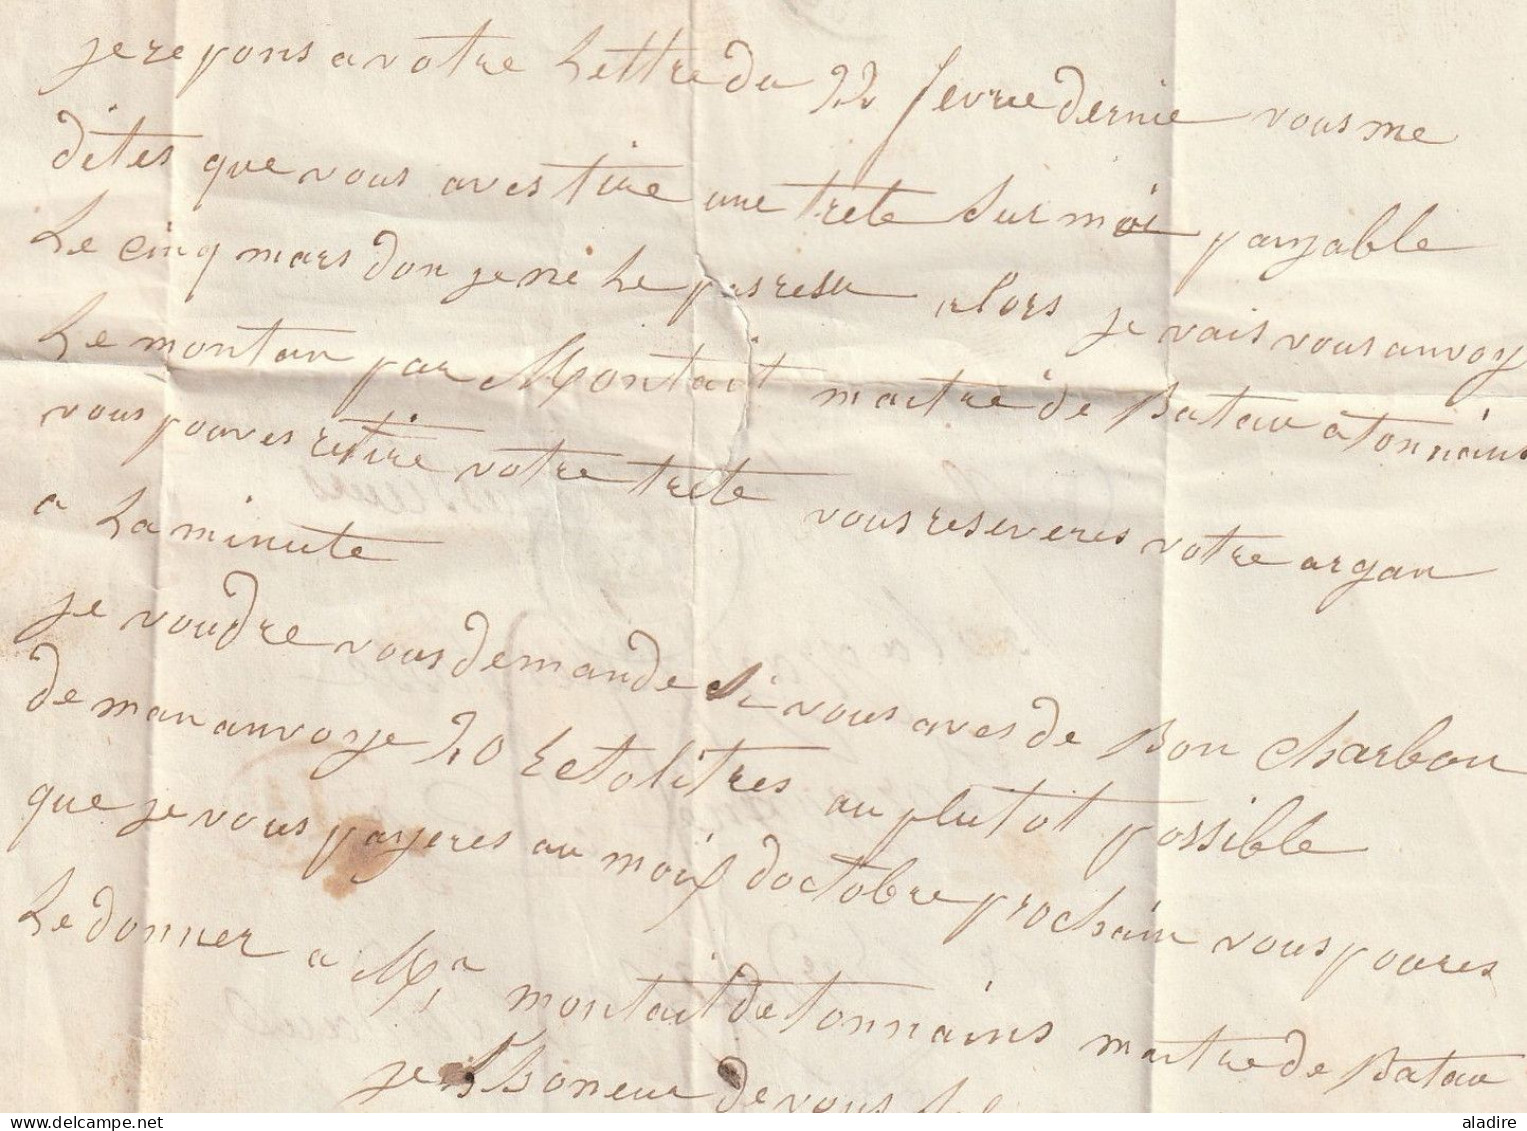 je repons a votre Lettre du 22 fevrie dernie vous me
dites que vous aves tire une trete sur moi payable
Le cinq mars don je ne Le pas resu alors je vais vous anvoy
Le montan par Montait maitre de Batau a tonnains
vous pouves retire votre trete vous reseveres votre argan
a La minute
je voudre vous demande si vous aves de Bon charbon
de man anvoye 20 Ectolitres au plutot possible
que je vous payeres au moix doctobre prochain vous poures
Le donner a Mr montait de tonnains maitre de Batau
je Lhoneur de vous
delcampe.net
aladire